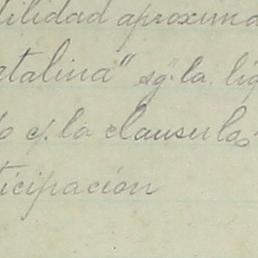 tilidad aproxima
atalina" sg. la liq
o c/. la clausula
ticipación